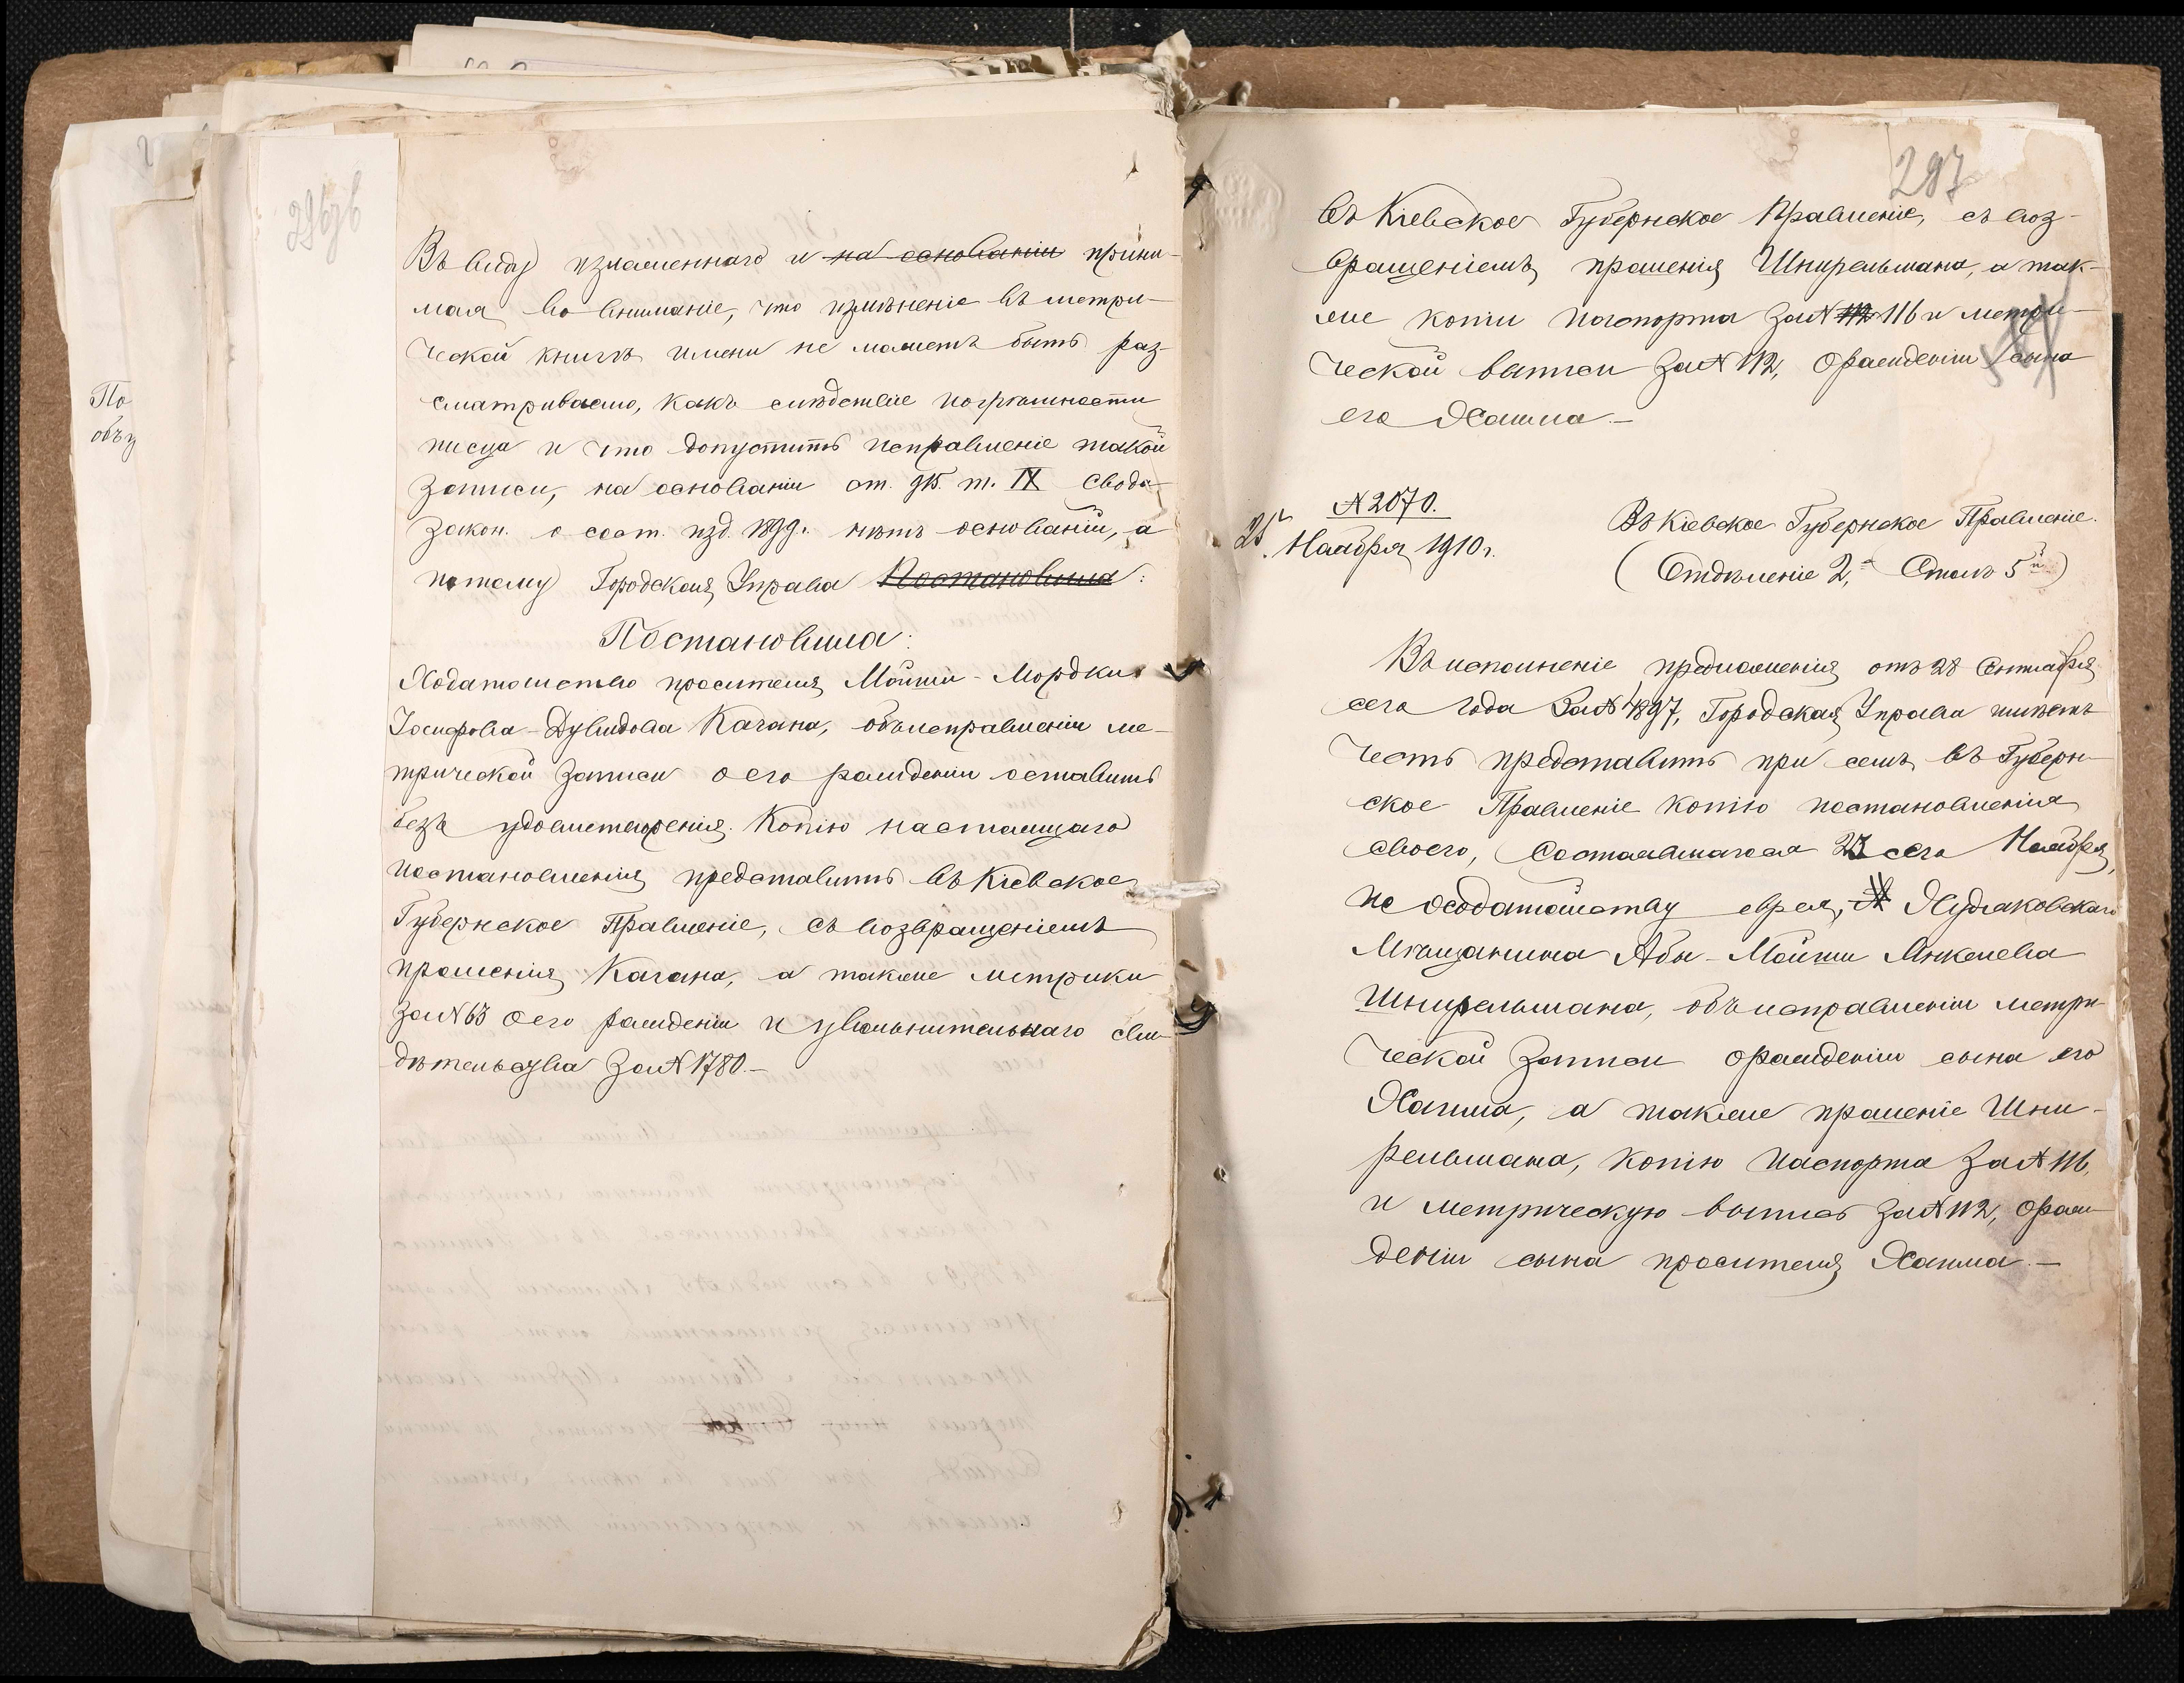 296 об
По
объ
Въ виду изложеннаго и на основаніи прини-
мая во вниманіе, что измѣненіе въ метри-
ческой книгѣ имени не можетъ быть раз-
сматриваемо, какъ слѣдствіе погрѣшности
писца и что допустить исправленіе такой
записи, на основаніи ст. т. IX Свода
Закон. о сост. изд. 1899 г. нѣтъ основаній, а
потому Городская Управа Постановила:
Постановила:
Ходатайство просителя Мойши-Мордка
Іосифова-Дувидова Кагана, объ исправленіи ме-
трической записи о его рожденіи оставить
безъ удовлетворенія. Копію настоящаго
постановленія представить въ Кіевское
Губернское Правленіе, съ возвращеніемъ
прошенія Кагана, а также метрики
за № 63 о его рожденіи и увольнительнаго сви-
дѣтельства за № 1780.-
297
въ Кіевское Губернское Правленіе, съ воз-
вращеніемъ прошенія Шнирельмана, а так-
же копіи паспорта за № 112 116 и метри-
ческой выписи за № 112, о рожденіи сына
его Хаима.-
№ 2070.
25 Ноября 1910 г.
Въ Кіевское Губернское Правленіе.
(Отдѣленіе 2, Столъ 5й)
Во исполненіе предложенія отъ 28 Сентября
сего года за № 4897, Городская Управа имѣетъ
честь представить при семъ въ Губерн-
ское Правленіе копію постановленія
своего, состоявшагося 23 сего Ноября,
по ходатайству еврея, Ходаковскаго
Мѣщанина Абы-Мойши Янкелева
Шнирельмана, объ исправленіи метри-
ческой записи о рожденіи сына его
Хаима, а также прошеніе Шни-
рельмана, копію паспорта за № 116,
и метрическую выпись за № 112, о рож-
деніи сына просителя Хаима.-